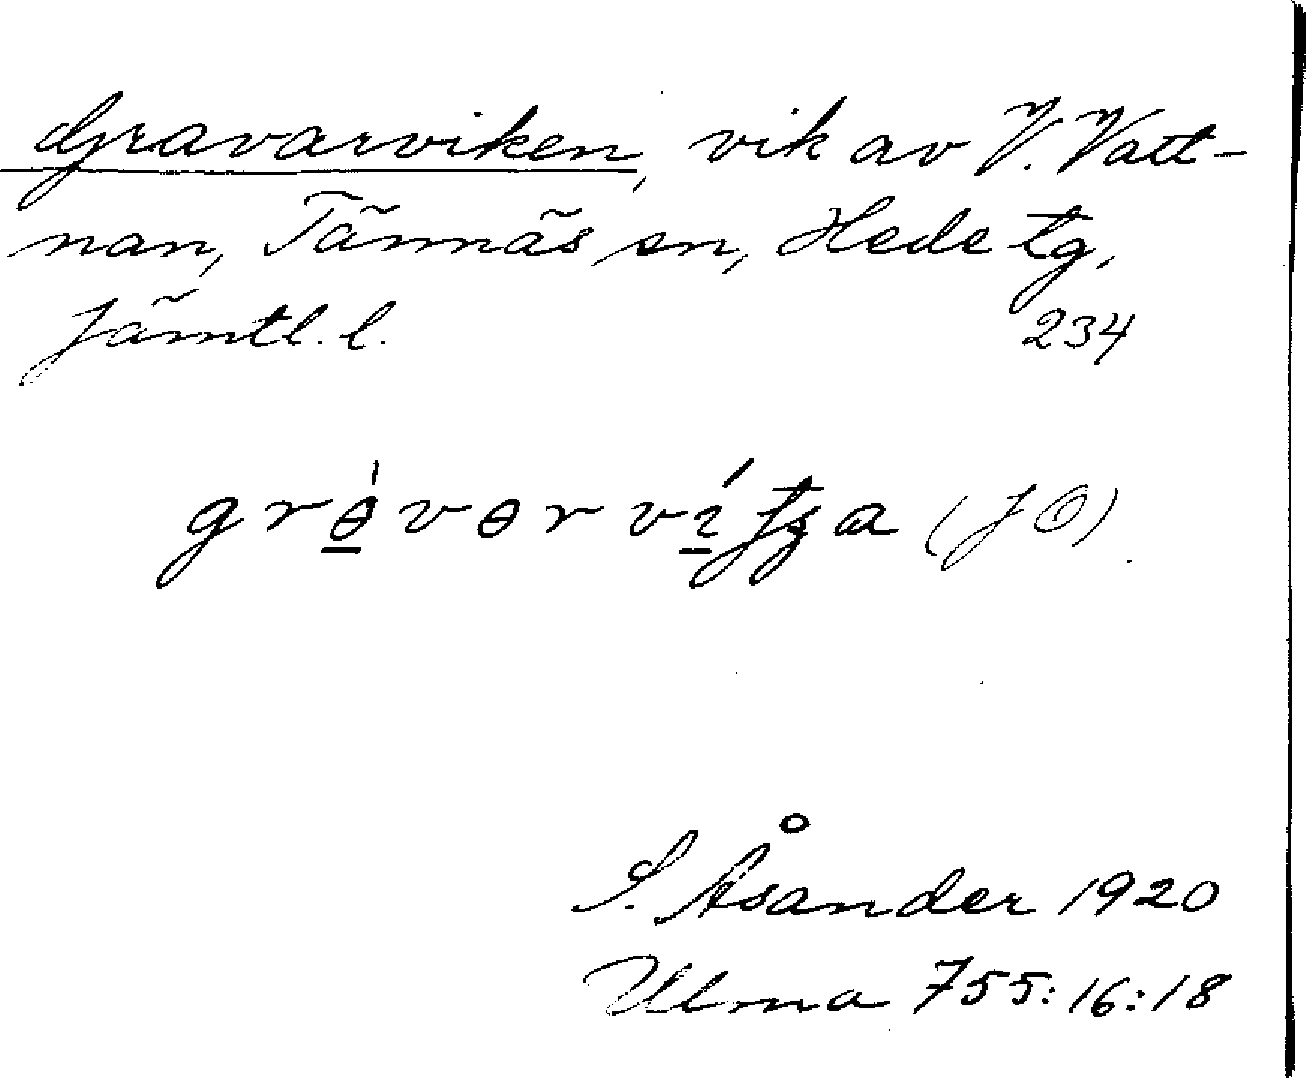 Gravarviken, vik av V. Vatt-
nan, Tännäs sn, Hede tg,
Jämtl. l. 234
(JÖ).
S. Åsander 1920
Ulma 755:16:18